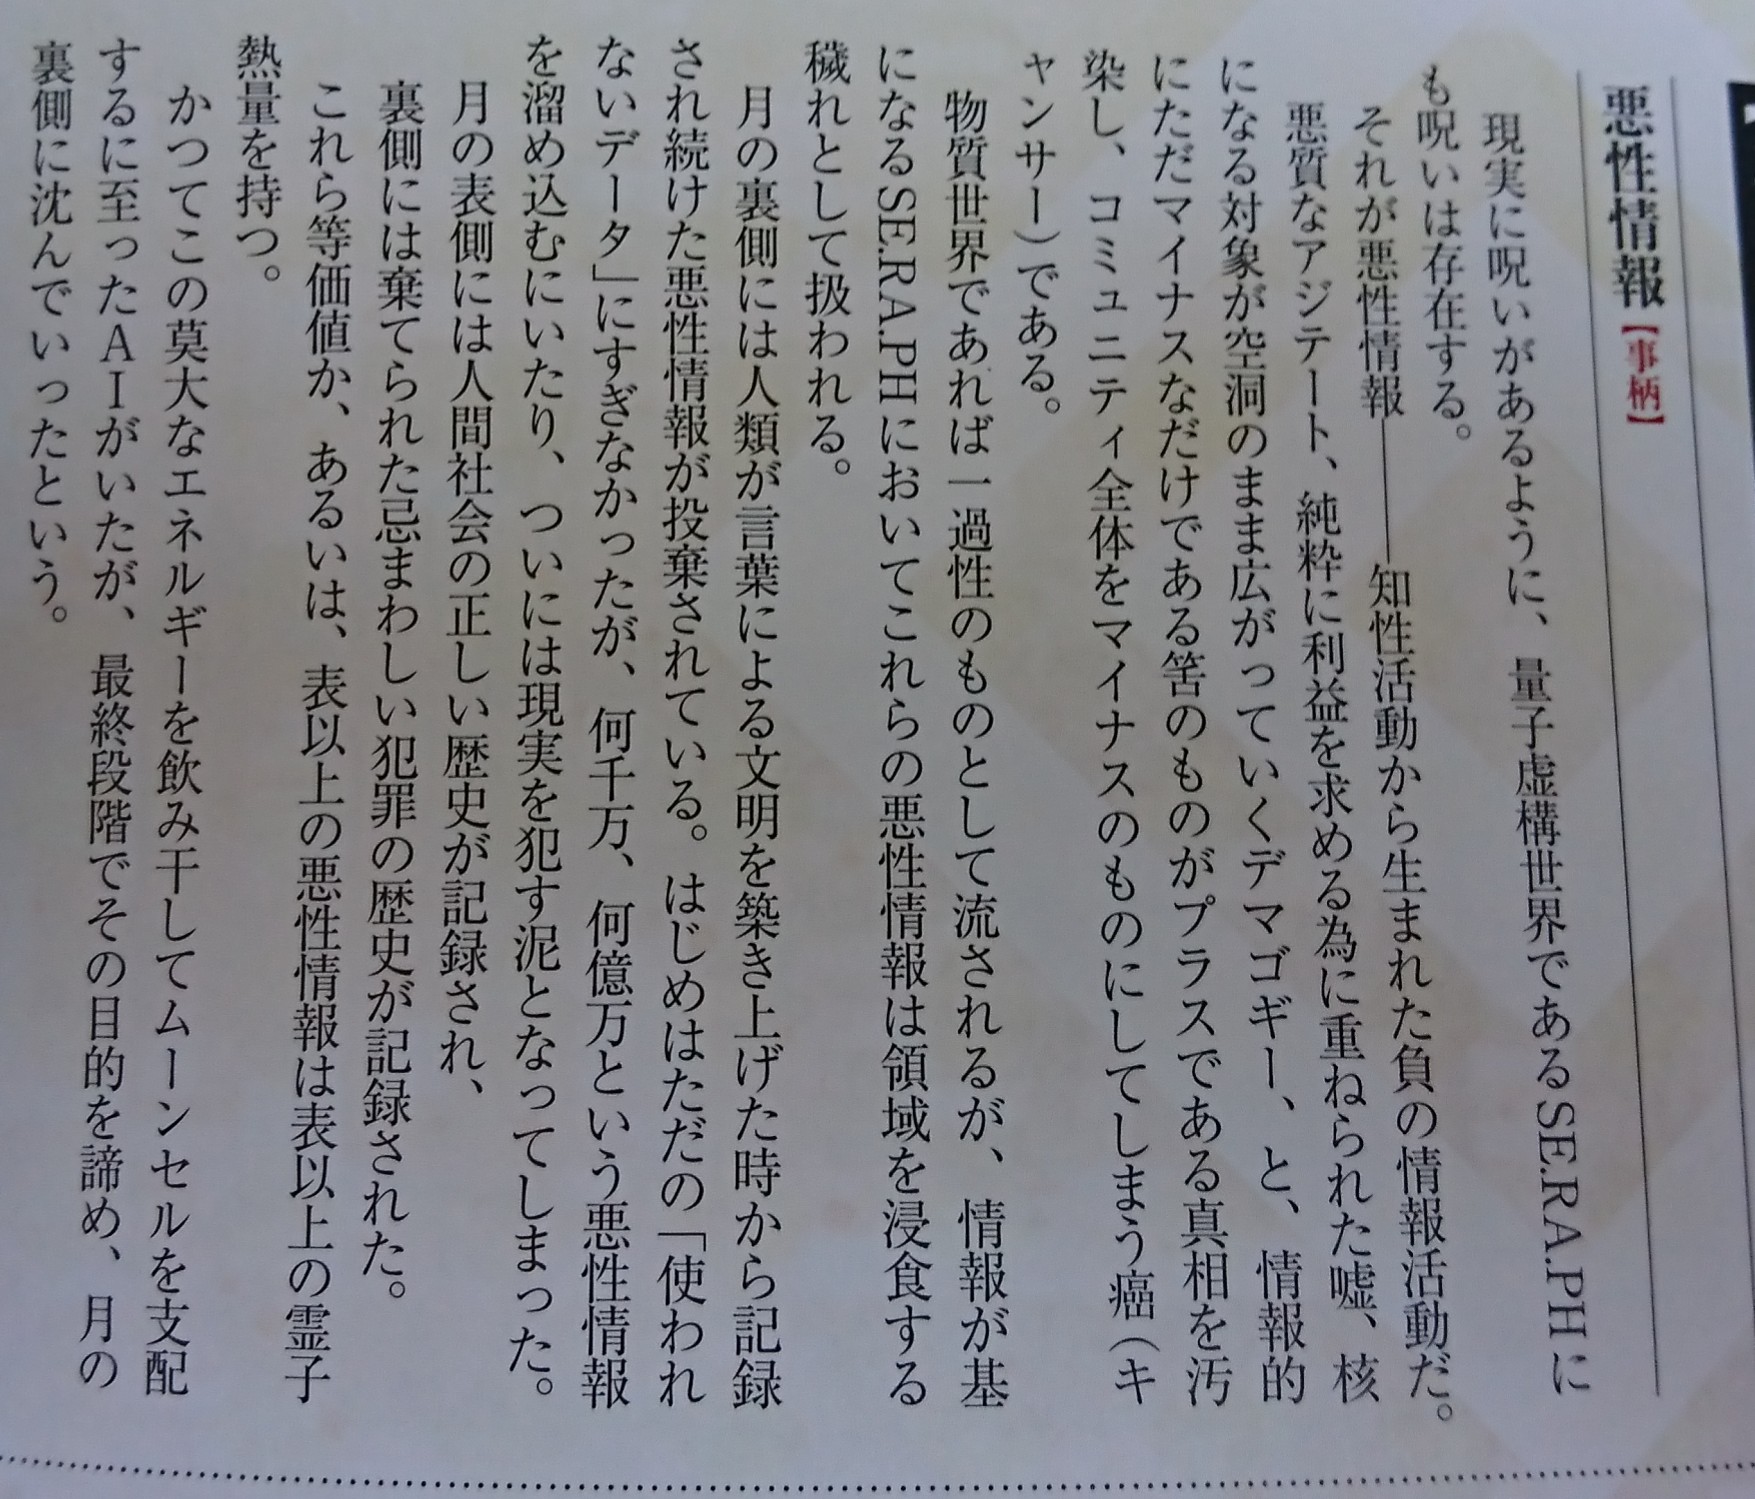 悪性情報【事柄】
現実に呪いがあるように、量子虚構世界であるSE.RA.PHに
も呪いは存在する。
それが悪性情報――知性活動から生まれた負の情報活動だ。
悪質なアジテート、純粋に利益を求める為に重ねられた嘘、核
になる対象が空洞のまま広がっていくデマゴギー、と、情報的
にただマイナスなだけである筈のものがプラスである真相を汚
染し、コミュニティ全体をマイナスのものにしてしまう癌（キ
ャンサー）である。
物質世界であれば一過性のものとして流されるが、情報が基
になるSE.RA.PHにおいてこれらの悪性情報は領域を浸食する
穢れとして扱われる。
月の裏側には人類が言葉による文明を築き上げた時から記録
され続けた悪性情報が投棄されている。はじめはただの「使われ
ないデータ」にすぎなかったが、何千万、何億万という悪性情報
を溜め込むにいたり、ついには現実を犯す泥となってしまった。
月の表側には人間社会の正しい歴史が記録され、
裏側には棄てられた忌まわしい犯罪の歴史が記録された。
これら等価値か、あるいは、表以上の悪性情報は表以上の霊子
熱量を持つ。
かつてこの莫大なエネルギーを飲み干してムーンセルを支配
するに至ったAIがいたが、最終段階でその目的を諦め、月の
裏側に沈んでいったという。